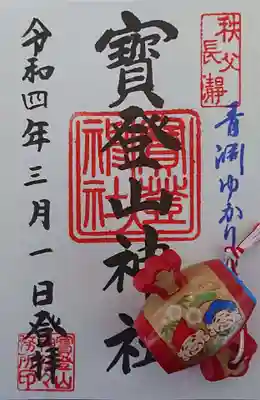 秩父
長瀞
青淵ゆかり
寳登山神社
寳登山
神社
令和四年三月一日登拝
寳登山
務所印